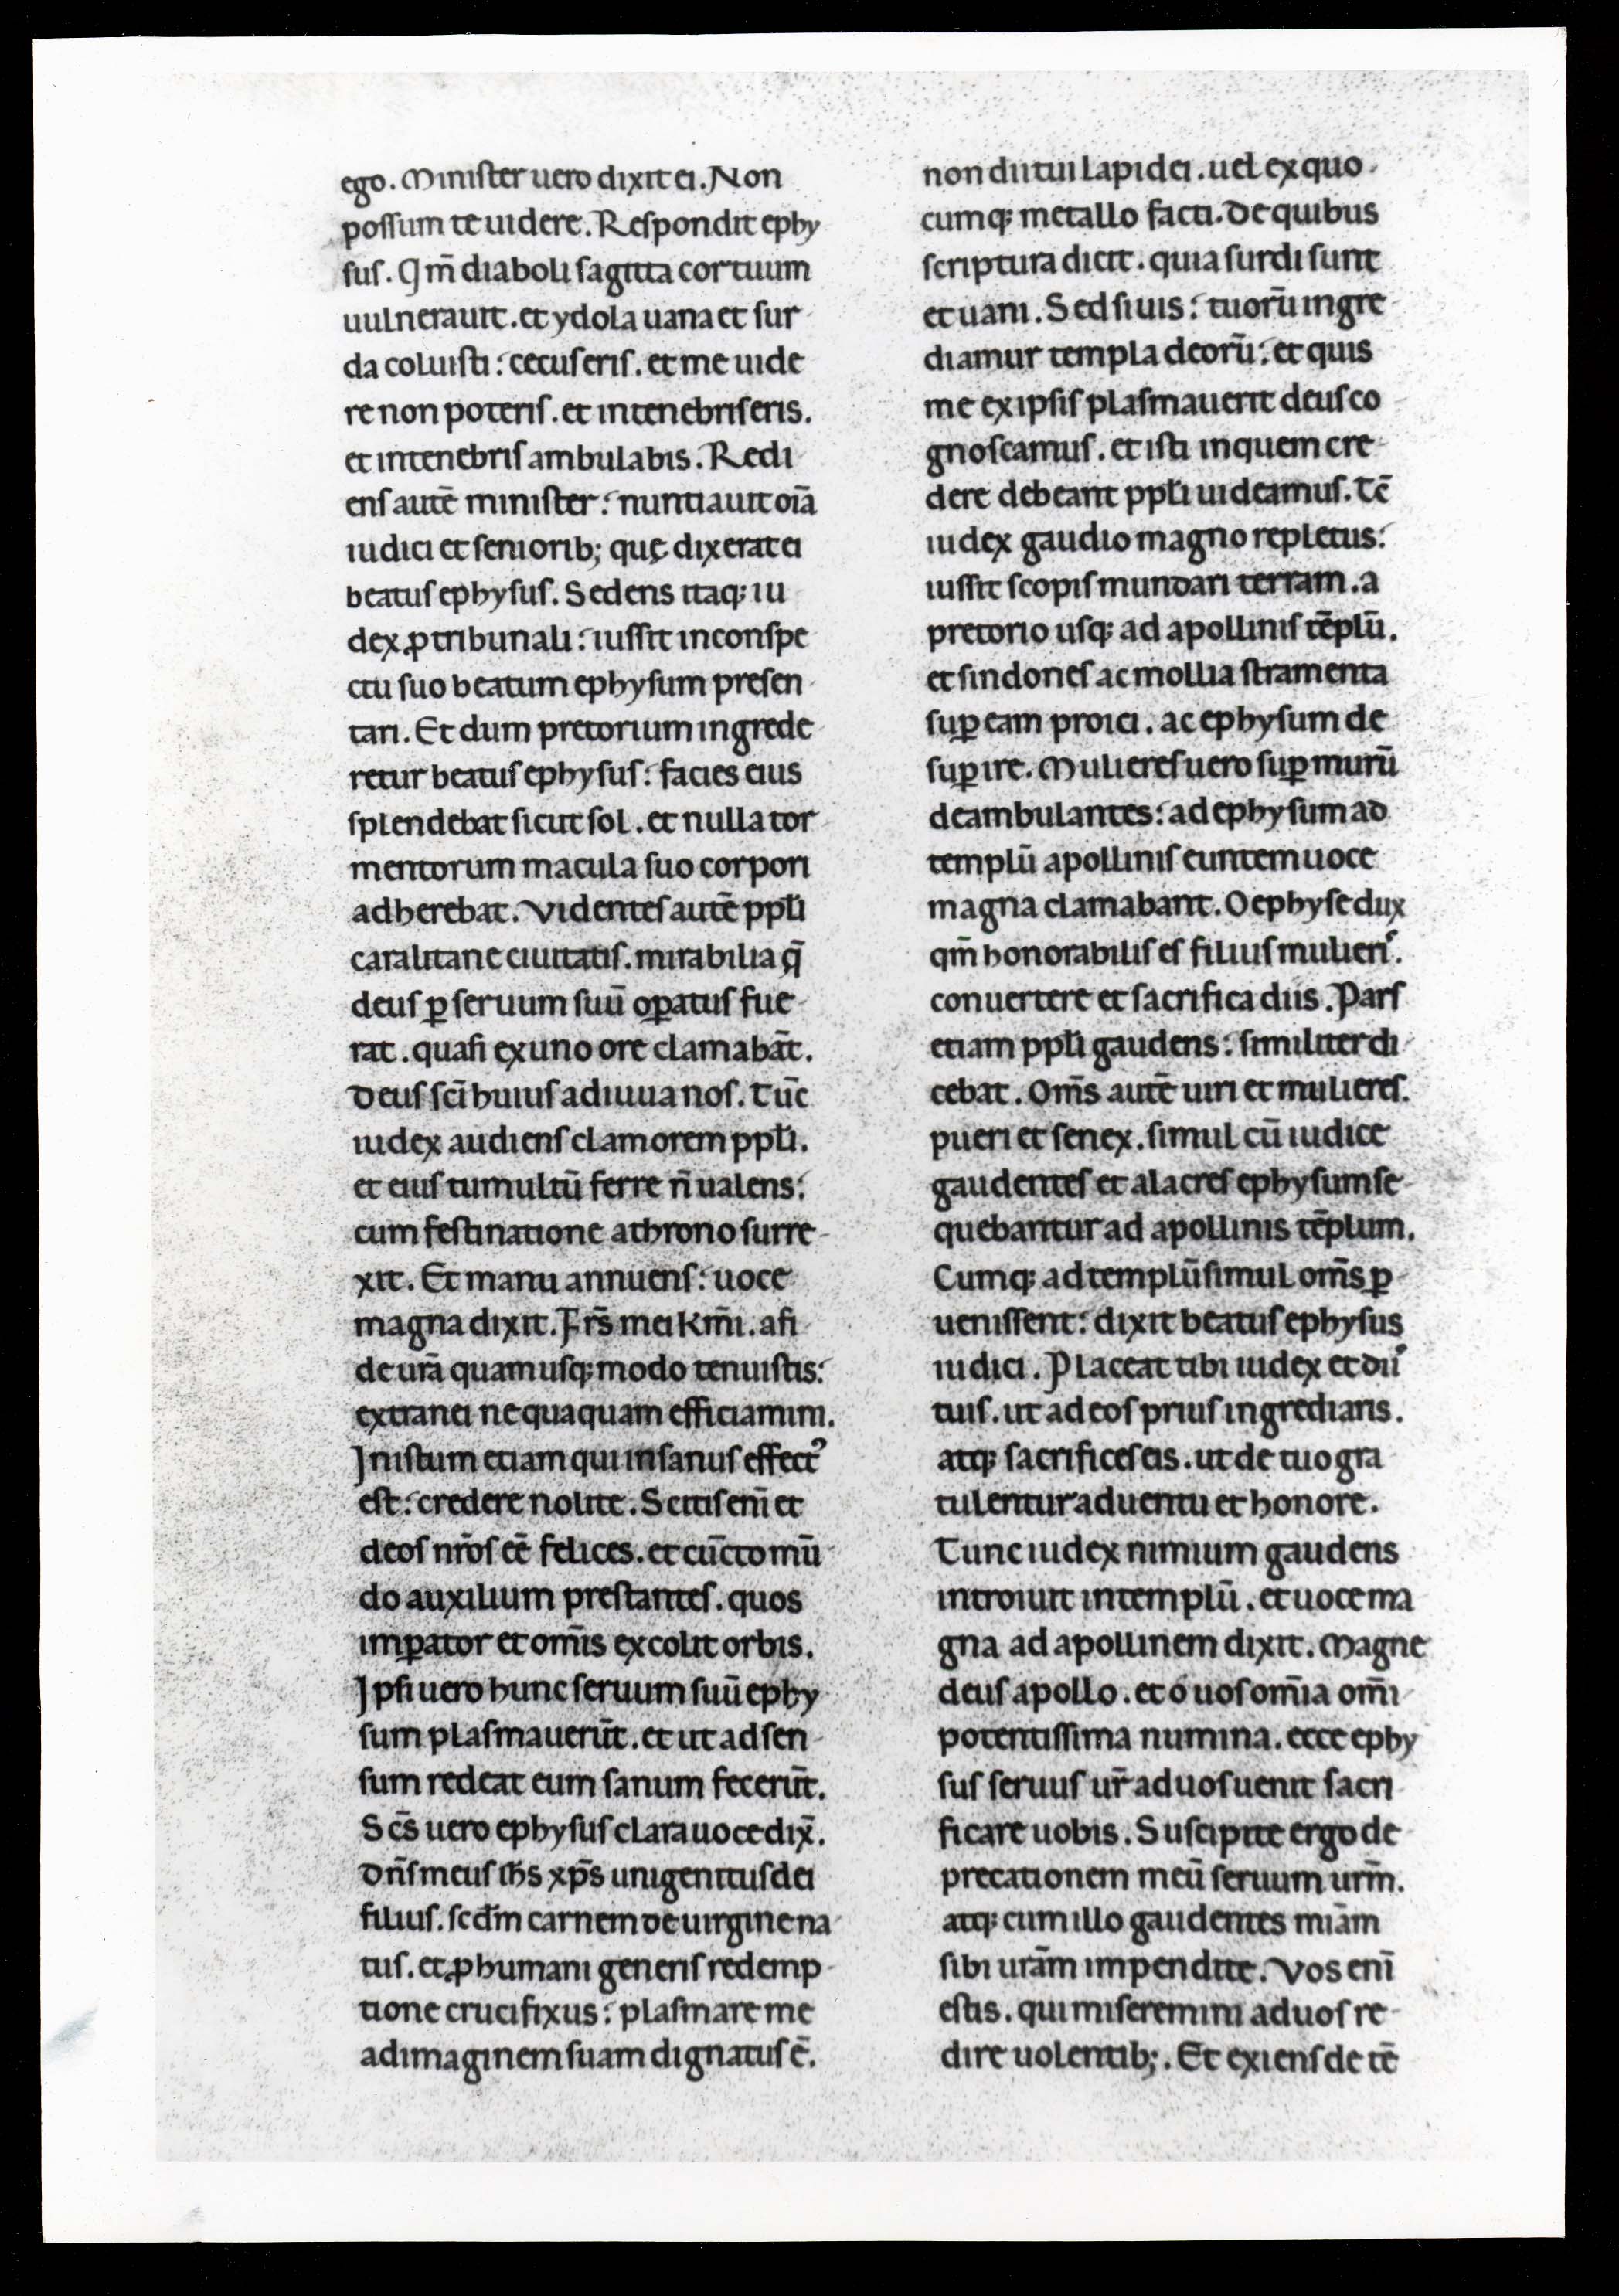 ego. Miniſter uero dixit ei. Non
poſſum te uidere. Reſpondit ephy
ſuſ. Qm̄ diaboli ſagitta cor tuum
uulnerauit. et ydola uana et ſur-
da coluiſti: cecuſ eriſ. et me uide
re non poteriſ. et in tenebriſ eris.
et in tenebriſ ambulabis. Redi-
enſ autē miniſter: nuntiauit oīa
iudici et ſeniorib; quę dixerat ei
beatuſ ephyſuſ. Sedens itaq; iu-
dex ꝓ tribunali: iuſſit in conſpe
ctu ſuo beatum ephyſum preſen-
tari. Et dum pretorium ingrede
retur beatuſ ephyſuſ: facies eius
ſplendebat ſicut ſol. et nulla tor-
mentorum macula ſuo corpori
adherebat. Videnteſ autē ppl̄i
caralitane ciuitatiſ. mirabilia q̄
deuſ ꝑ ſeruum ſuū oꝑatuſ fue-
rat. quaſi ex uno ore clamabāt.
Deuſ ſc̄i huiuſ adiuua noſ. Tūc
iudex audienſ clamorem ppl̄i.
et eiuſ tumultū ferre n̄ ualens:
cum feſtinatione a throno ſurre-
xit. Et manu annuenſ: uoce
magna dixit. Fr̄s mei km̄i. a fi
de ur̄a quam uſq; modo tenuiſtis:
extranei nequaquam efficiamini.
In iſtum etiam qui inſanuſ effectꝰ
eſt: credere nolite. Scitiſ eni̅ et
deoſ nr̄oſ eē felices. et cūcto mū-
do auxilium preſtanteſ. quos
imꝑator et om̄is excolit orbis.
Ipſi uero hunc ſeruum ſuū ephy
ſum plaſmauerūt. et ut ad ſen-
ſum redeat eum ſanum fecerūt.
Sc̄s uero ephyſuſ clara uoce dix̄.
Dn̄ſ meuſ ih̄s xp̄s unigenituſ dei
filiuſ. ſcd̄m carnem de uirgine na-
tuſ. et ꝓ humani generiſ redemp-
tione crucifixus: plaſmare me
ad imaginem ſuam dignatuſ ē.
non dii tui lapidei. uel ex quo-
cumq; metallo facti. De quibus
ſcriptura dicit. quia ſurdi ſunt
et uani. Sed ſi uis: tuorū ingre-
diamur templa deorū: et quis
me ex ipſiſ plaſmauerit deuſ co
gnoſcamuſ. et iſti in quem cre-
dere debeant ppl̄i uideamuſ. Tc̄
iudex gaudio magno repletus:
iuſſit ſcopiſ mundari terram. a
pretorio uſq; ad apolliniſ tēplū.
et ſindoneſ ac mollia ſtramenta
ſuꝑ eam proici. ac ephyſum de
ſuꝑ ire. Muliereſ uero ſuꝑ murū
deambulantes: ad ephyſum ad
templū apolliniſ euntem uoce
magna clamabant. O ephyſe dux
qm̄ honorabiliſ eſ filiuſ mulieriſ.
conuertere et ſacrifica diis. Parſ
etiam ppl̄i gaudens: ſimiliter di-
cebat. Om̄s autē uiri et muliereſ.
pueri et ſenex. ſimul cū iudice
gaudenteſ et alacreſ ephyſum ſe-
quebantur ad apollinis tēplum.
Cumq; ad templū ſimul om̄s ꝑ-
ueniſſent: dixit beatuſ ephyſus
iudici. Placeat tibi iudex et diiſ
tuiſ. ut ad eoſ priuſ ingrediaris.
atq; ſacrificeſ eis. ut de tuo gra
tulentur aduentu et honore.
Tunc iudex nimium gaudens
introiuit in templū. et uoce ma
gna ad apollinem dixit. Magne
deuſ apollo. et ó uoſ om̄ia om̄i-
potentiſſima numina. ecce ephy
ſuſ ſeruuſ ur̄ ad uoſ uenit ſacri-
ficare uobis. Suſcipite ergo de-
precationem meū ſeruum urm̄.
atq; cum illo gaudentes miām
ſibi urām impendite. Vos eni̅
eſtis. qui miſeremini ad uoſ re-
dire uolentib;. Et exienſ de tē